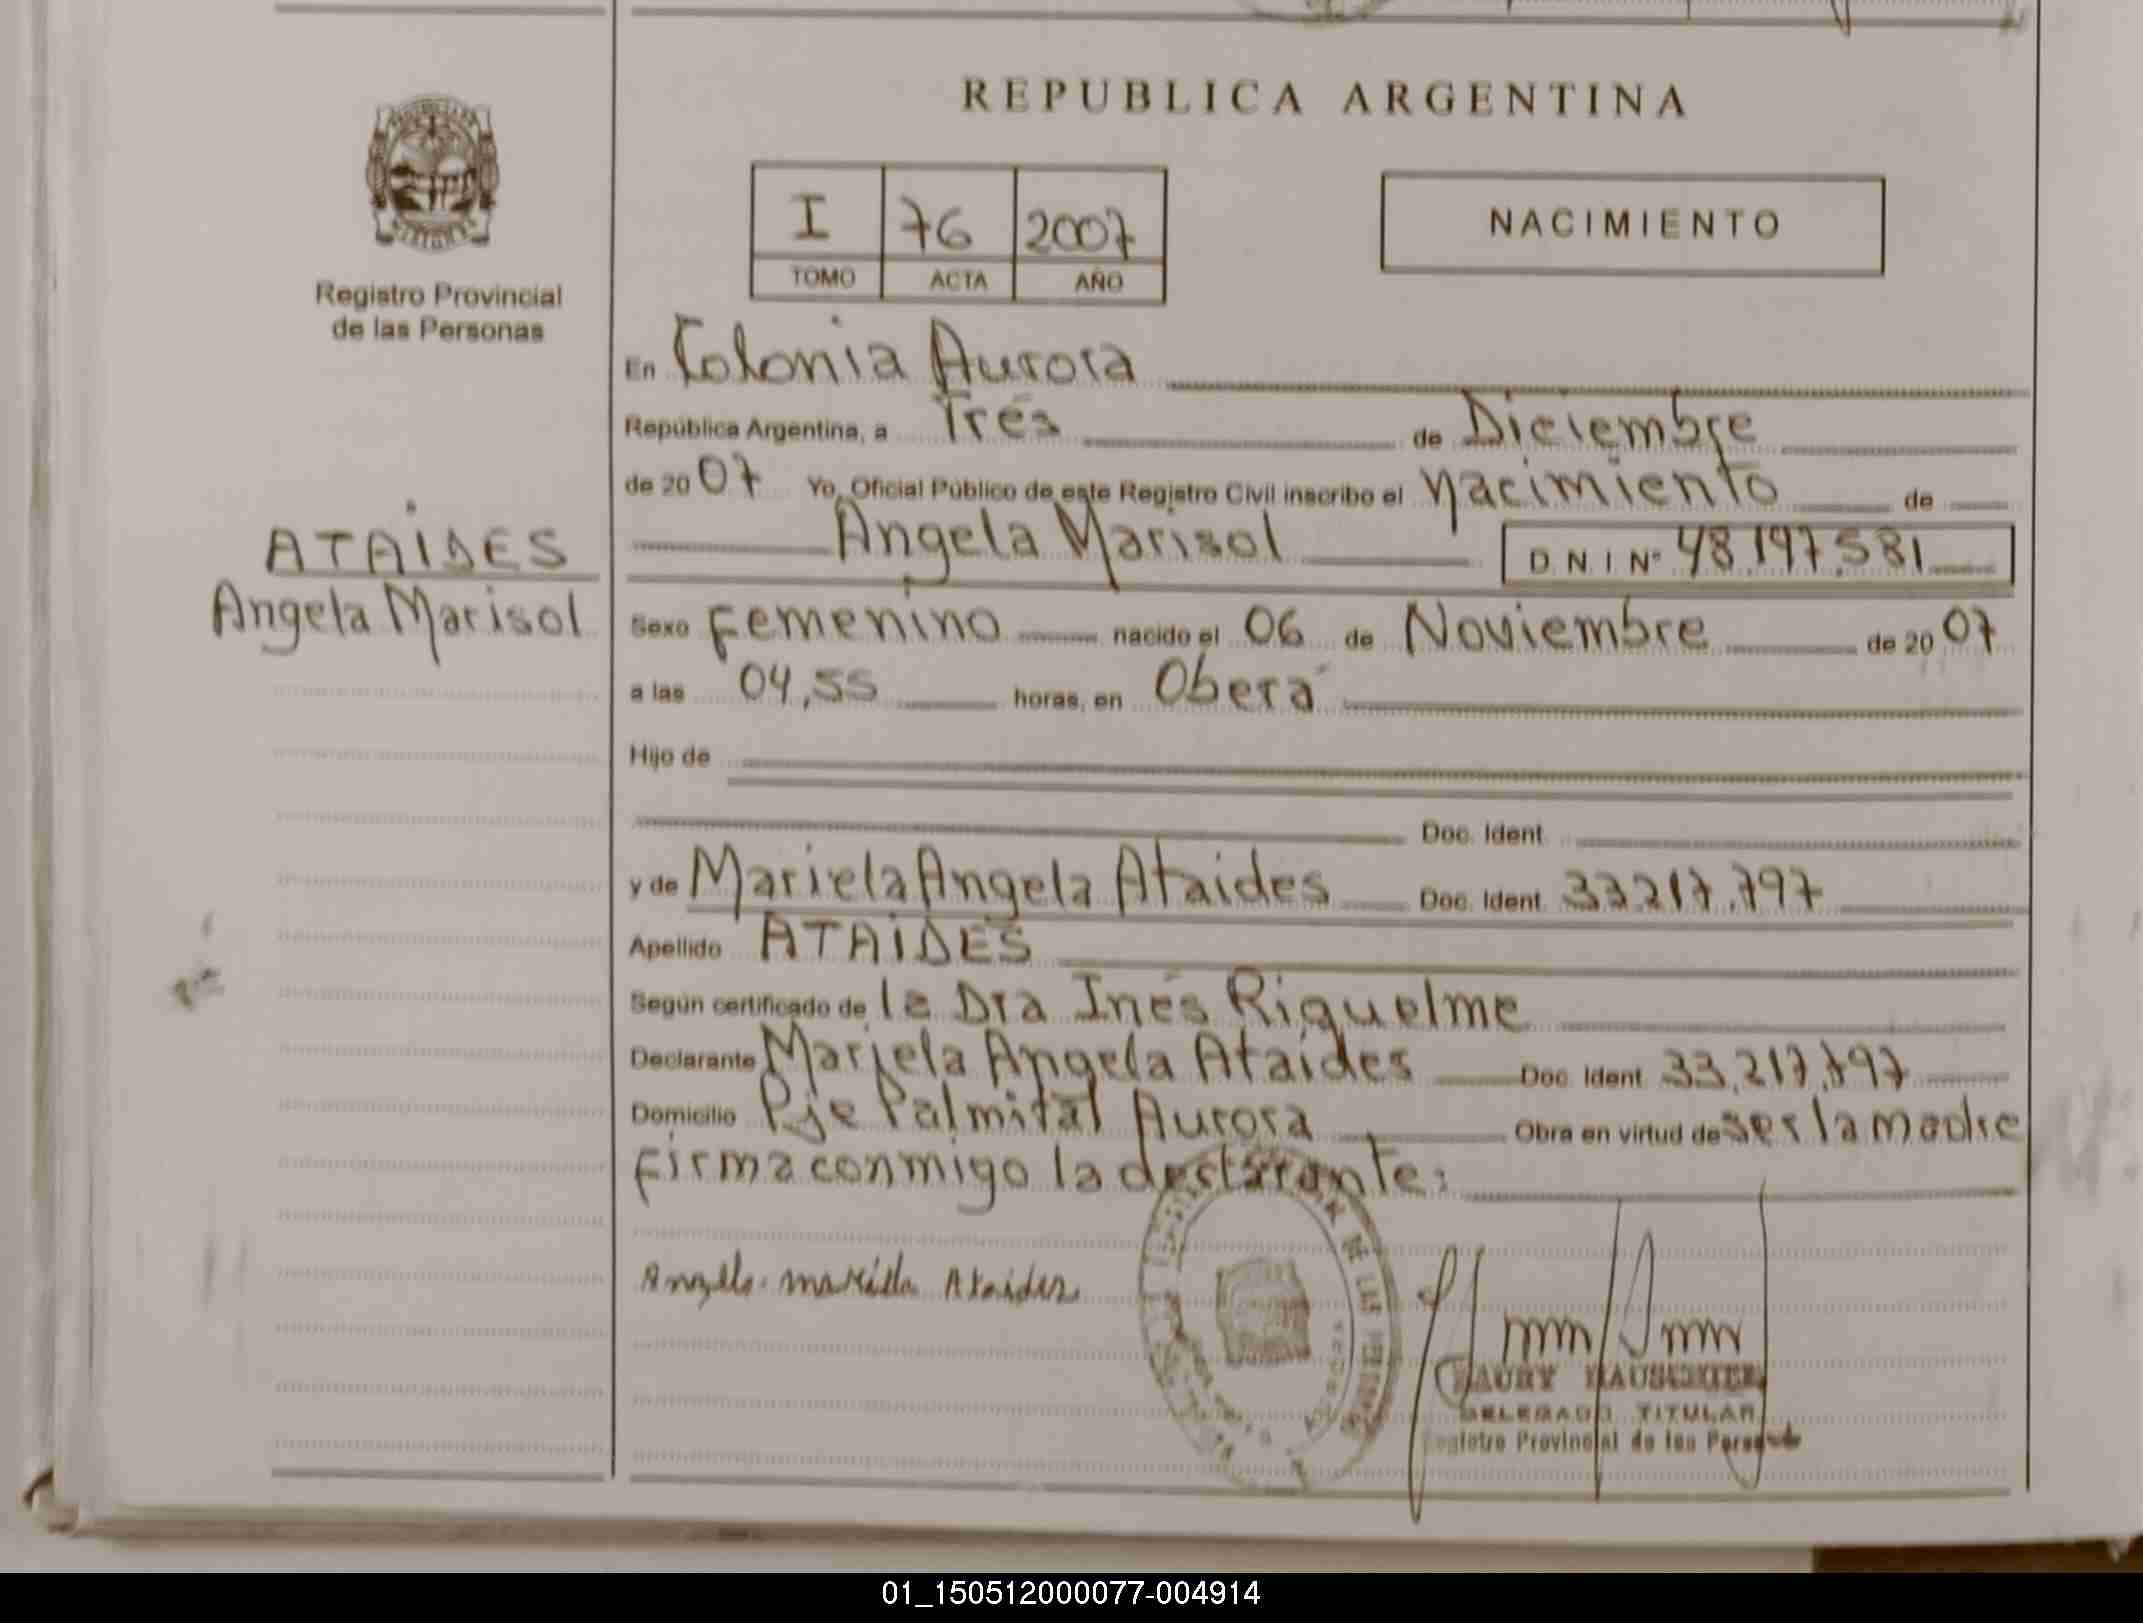 REPUBLICA ARGENTINA
I 76 2007
TOMO ACTA AÑO
NACIMIENTO
Registro Provincial
de las Personas
ATAIDES
Angela Marisol
En Colonia Aurora
República Argentina, a Tres de Diciembre
de 2007 Yo, Oficial Público de este Registro Civil inscribo el Nacimiento de
Angela Marisol D.N.I Nº 48.197.581
Sexo Femenino nacido el 06 de Noviembre de 2007
a las 04,55 horas, en Oberá
Hijo de
Doc. Ident.
y de Mariela Angela Ataides Doc. Ident. 33.217.797
Apellido ATAIDES
Según certificado de la Dra Inés Riquelme
Declarante Mariela Angela Ataides Doc. Ident. 33.217.797
Domicilio Pje Palmital Aurora Obra en virtud de ser la madre
firma conmigo la declarante:
Angela Mariela Ataides
DE LAS
DELEGADO TITULAR
Registro Provincial de las Personas
01_150512000077-004914